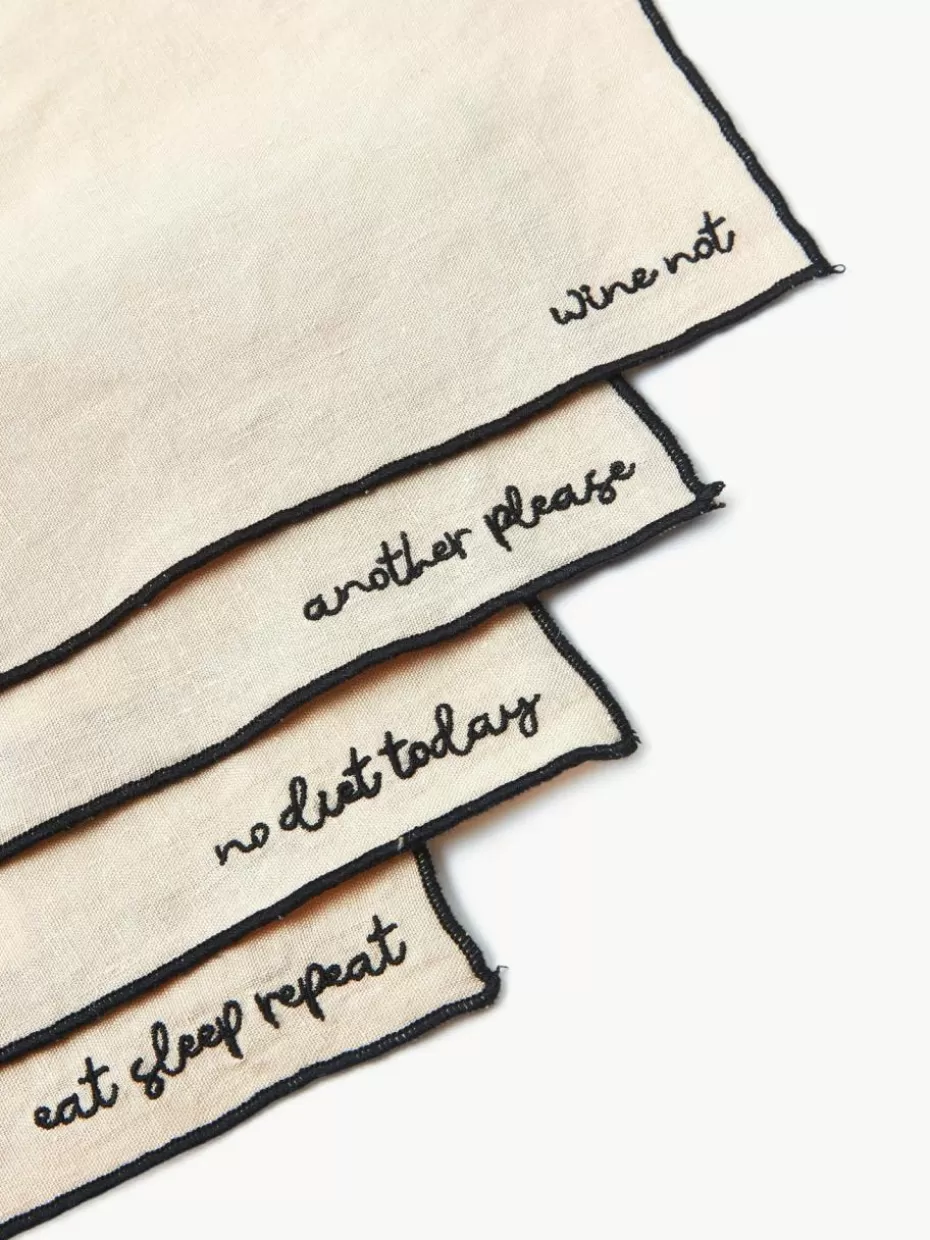 wine not
another please
no diet today
eat sleep repeat